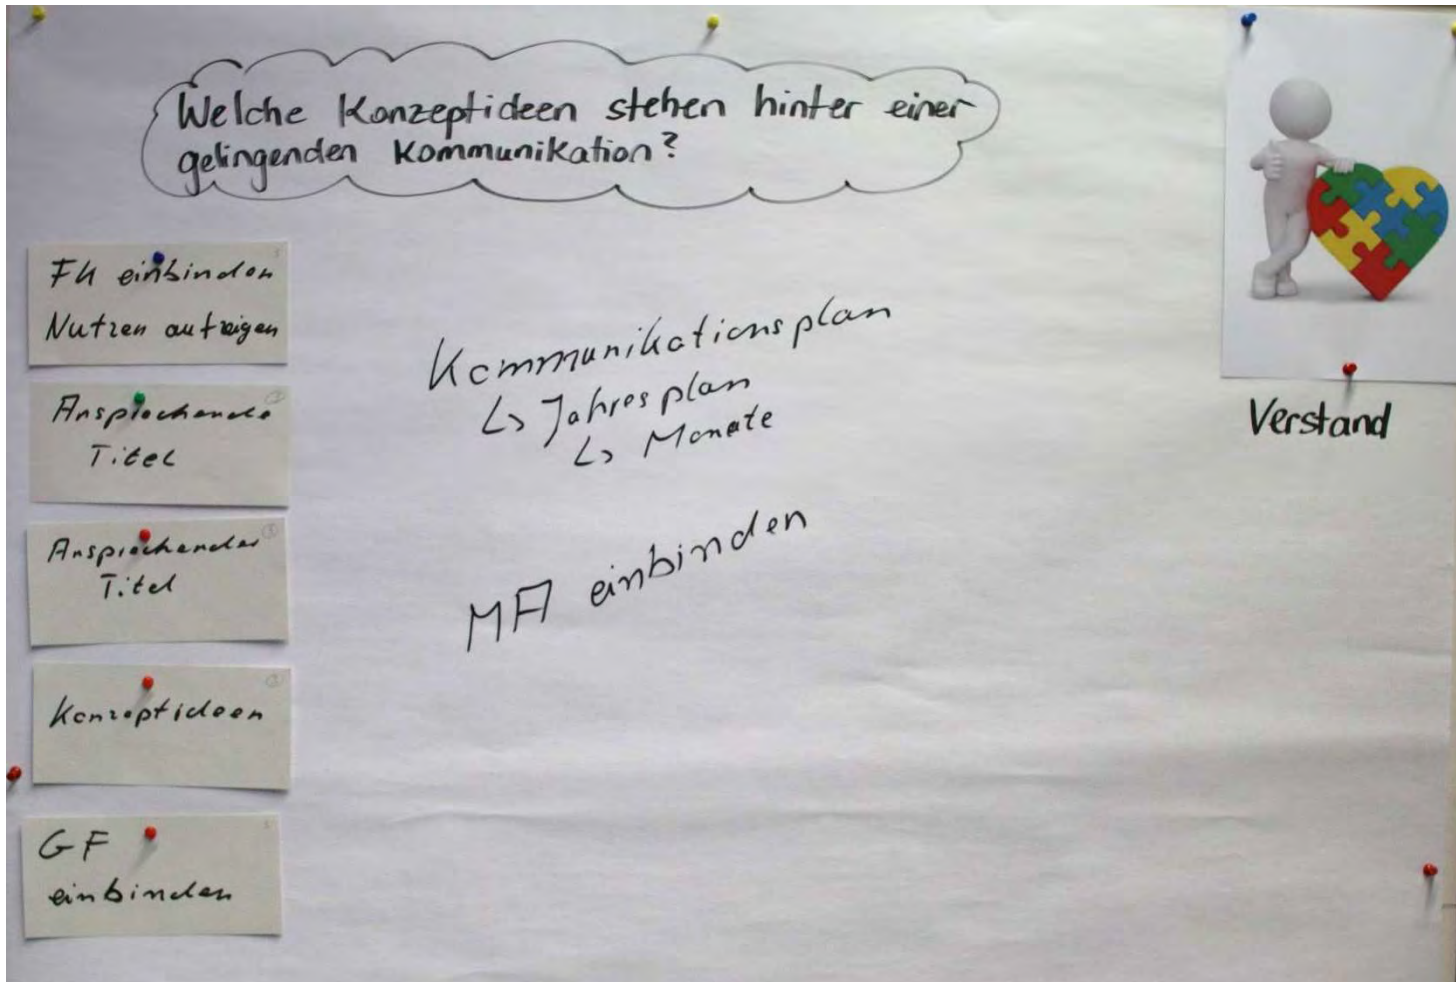 Welche Konzeptideen stehen hinter einer
gelingenden Kommunikation?
FK einbinden
Nutzen aufzeigen
Ansprechende
Titel
Ansprechender
Titel
Konzeptideen
GF
einbinden
Kommunikationsplan
↳ Jahresplan
↳ Monate
MA einbinden
Verstand